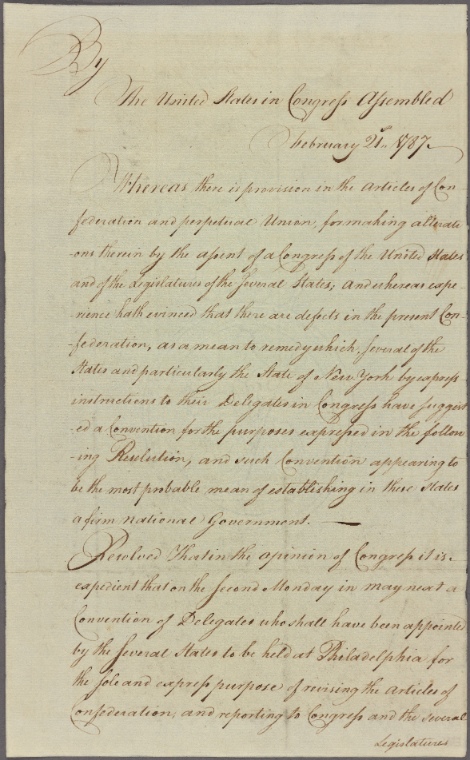 By
The United States in Congress Assembled
February 21st 1787.
Whereas there is provision in the Articles of Con
federation and perpetual Union, for making alterati
-ons therein by the assent of a Congress of the United States
and of the Legislatures of the several States; And whereas expe
rience hath evinced that there are defects in the present Con-
-federation, as a mean to remedy which, several of the
States and particularly the State of New York by express
instructions to their Delegates in Congress have suggest
-ed a Convention for the purposes expressed in the follow
-ing Resolution, and such Convention appearing to
be the most probable mean of establishing in these States
a firm national Government. —
Resolved That in the opinion of Congress it is
expedient that on the second Monday in May next a
Convention of Delegates who shall have been appointed
by the several States to be held at Philadelphia for
the sole and express purpose of revising the Articles of
Confederation, and reporting to Congress and the several
Legislatures